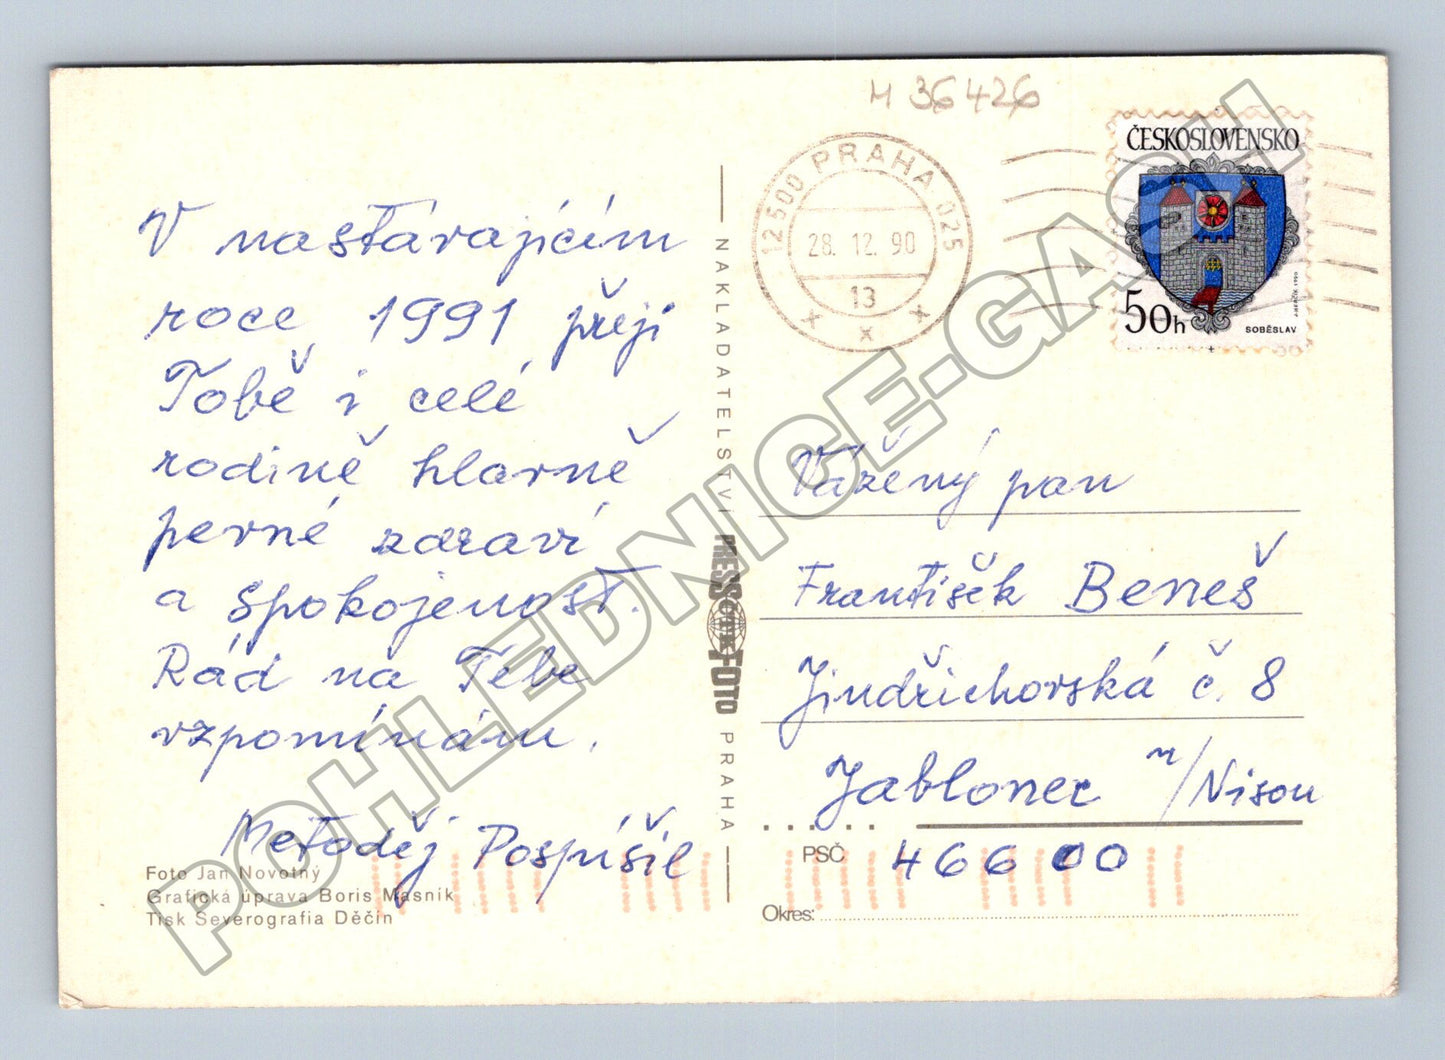 V nastávajícím
roce 1991 přeji
Tobě i celé
rodině hlavně
pevné zdraví
a spokojenost.
Rád na Tebe
vzpomínám.
Metoděj Pospíšil
Foto Jan Novotný
Grafická úprava Boris Masník
Tisk Severografia Děčín
NAKLADATELSTVÍ PRESSFOTO PRAHA
ČTK
M 36426
12500 PRAHA 025
28.12.90
13
x x x
ČESKOSLOVENSKO
50h
SOBĚSLAV
Vážený pan
František Beneš
Jindřichovská č. 8
Jablonec n/Nisou
PSČ 466 00
Okres:
POHLEDNICE-GASH